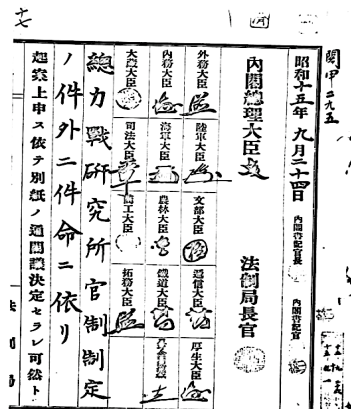 閣甲二九五
昭和十五年九月二十四日
內閣書記官長
內閣書記官
內閣總理大臣
法制局長官
外務大臣
陸軍大臣
文部大臣
遞信大臣
厚生大臣
內務大臣
海軍大臣
農林大臣
鐵道大臣
大藏大臣
司法大臣
商工大臣
拓務大臣
總力戰硏究所官制制定
ノ件外二件命ニ依リ
起案上申ス依テ別紙ノ通閣議決定セラレ可然ト
法制局
十七